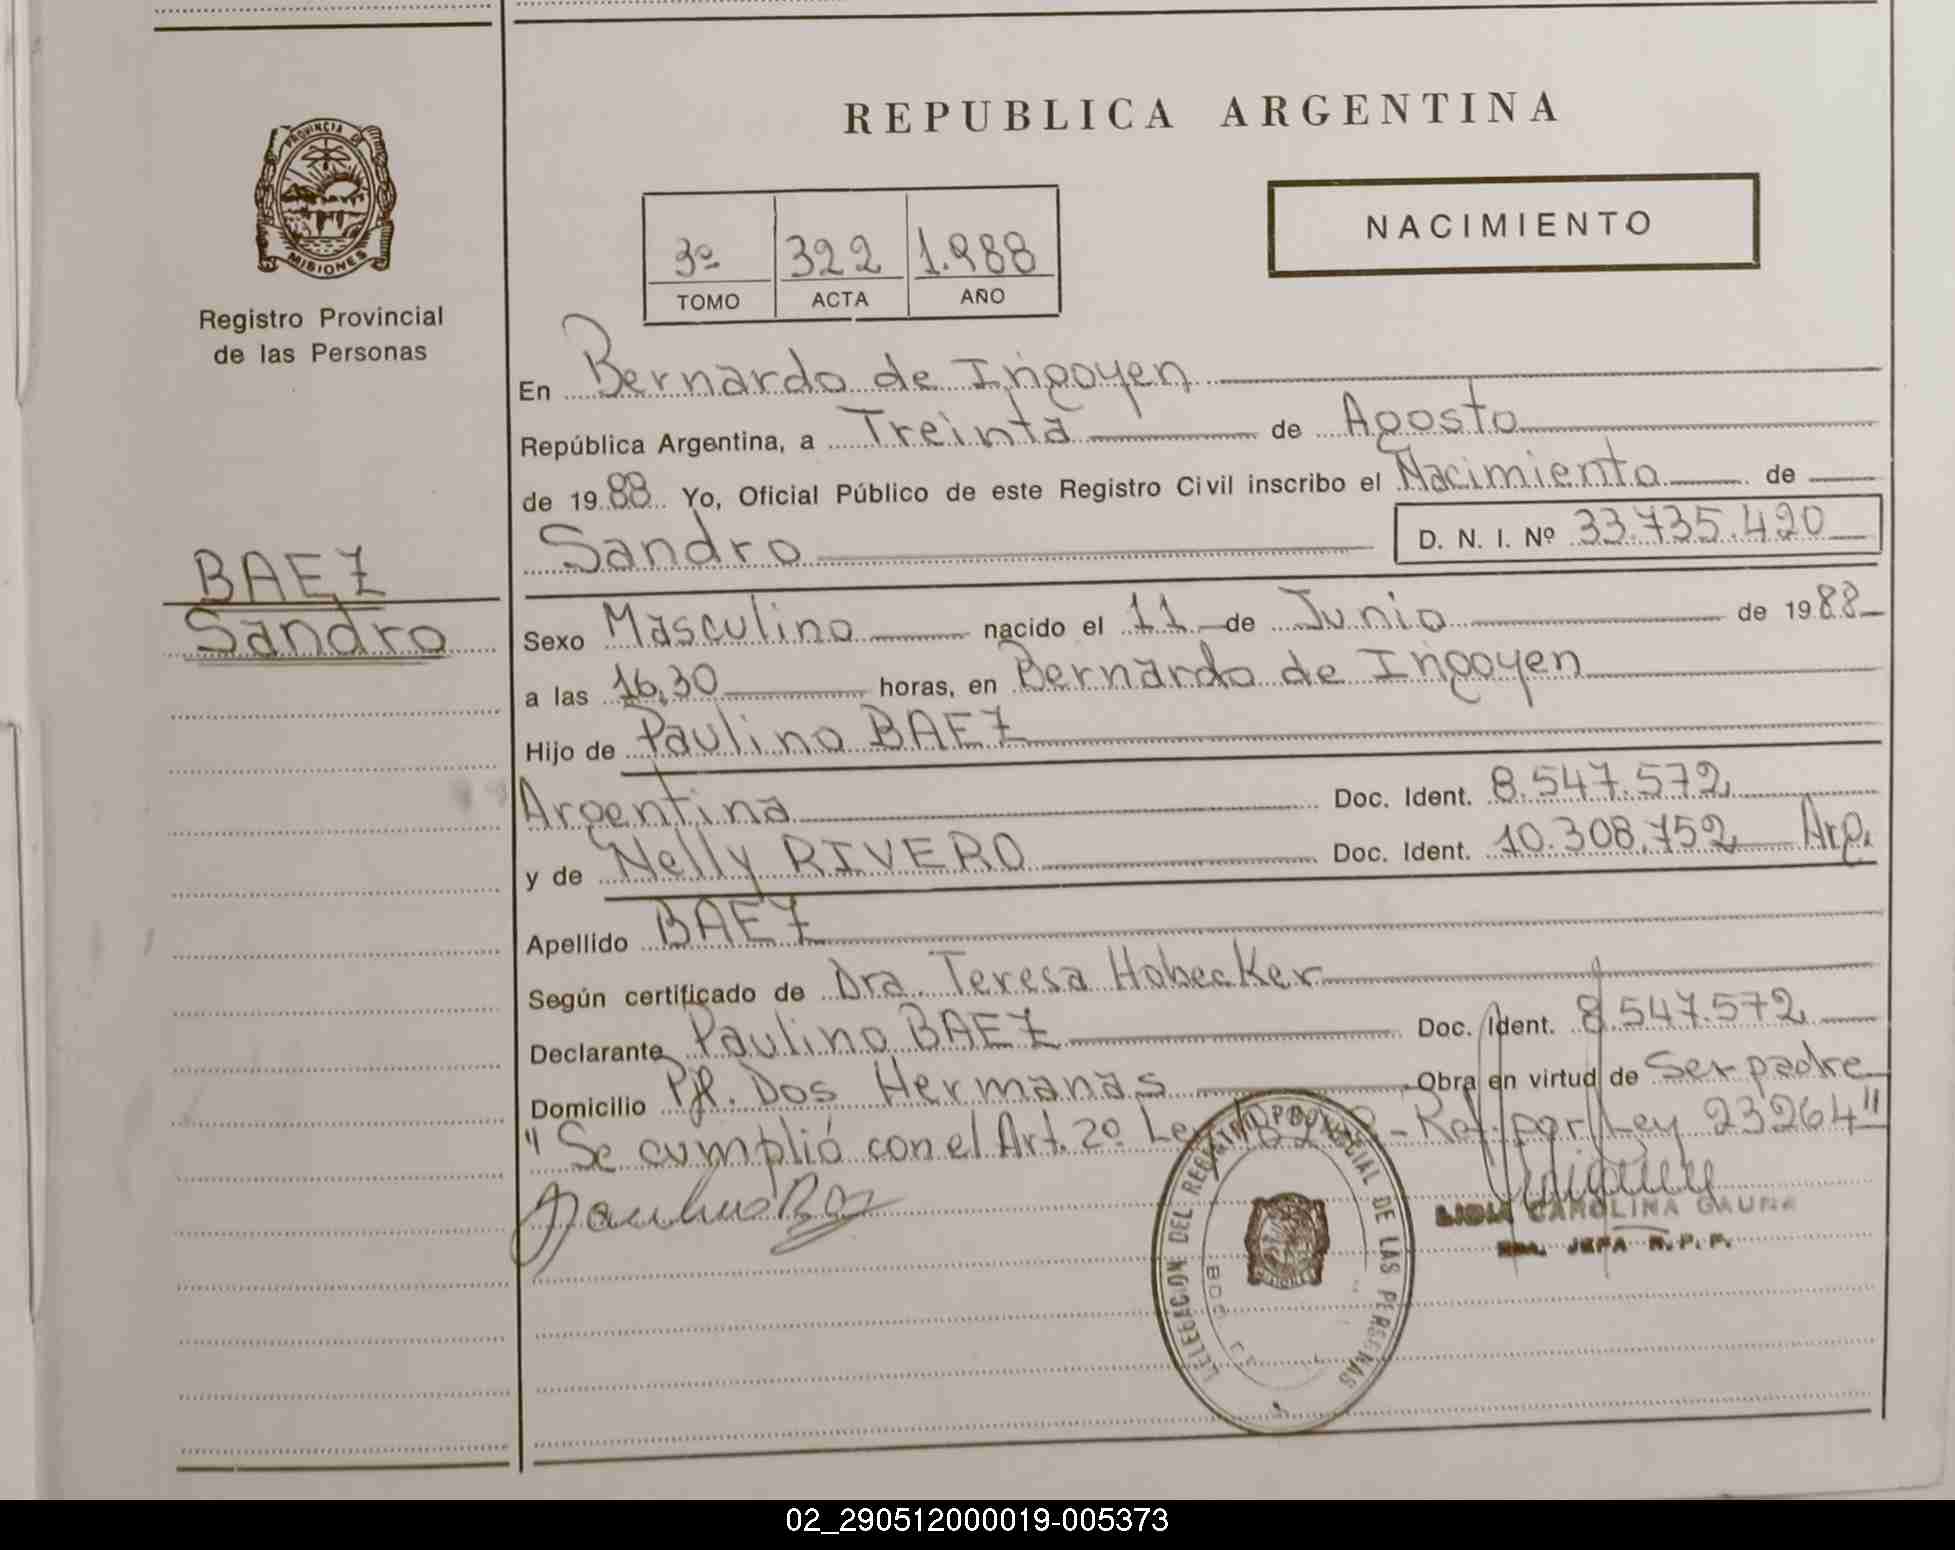 REPUBLICA ARGENTINA
PROVINCIA DE
MISIONES
Registro Provincial
de las Personas
3º 322 1.988
TOMO ACTA AÑO
NACIMIENTO
En Bernardo de Irigoyen
República Argentina, a Treinta de Agosto
de 1988 Yo, Oficial Público de este Registro Civil inscribo el Nacimiento de
Sandro D. N. I. Nº 33.735.420
BAEZ
Sandro
Sexo Masculino nacido el 11 de Junio de 1988
a las 16,30 horas, en Bernardo de Irigoyen
Hijo de Paulino BAEZ
Argentina Doc. Ident. 8.547.572
y de Nelly RIVERO Doc. Ident. 10.308.752 Arg.
Apellido BAEZ
Según certificado de Dra. Teresa Hobecker
Declarante Paulino BAEZ Doc. Ident. 8.547.572
Domicilio Pje. Dos Hermanas Obra en virtud de Ser padre
"Se cumplió con el Art. 2º. Ley - Rat. por Ley 23264"
DELEGACION DEL REGISTRO PROVINCIAL DE LAS PERSONAS
LIDIA CAROLINA GAUNA
JEFA R.P.P.
02_290512000019-005373